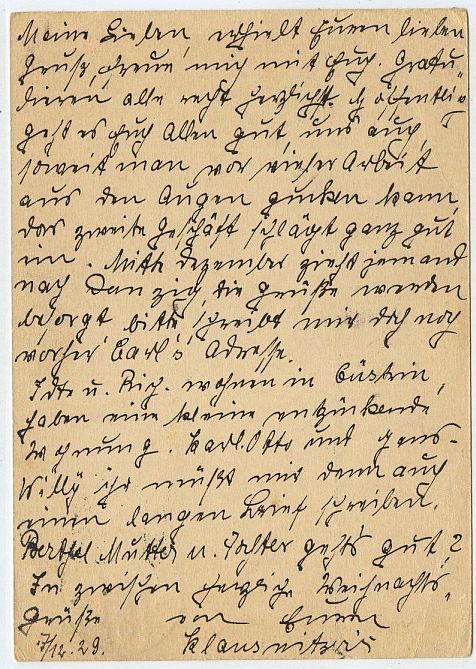 Meine Lieben, erhielt Euren lieben
Gruß, freue mich mit Euch. Gratu-
lieren alle recht herzlichst. Hoffentlich
geht es Euch Allen gut, uns auch,
soweit man vor vieler Arbeit
aus den Augen gucken kann,
das zweite Geschäft schlägt ganz gut
ein. Mitte Dezember zieht jemand
nach Danzig, die Grüße werden
besorgt, bitte schreibt mir doch noch
vorher Carl's Adresse.
u. Rich. wohnen in Cüstrin,
haben eine kleine entzückende
Wohnung. Karl Otto und Hans-
Willy ihr müßt mir denn auch
einen langen Brief schreiben.
Mutter u. Tochter geht's gut?
Inzwischen herzliche Weihnachts-
grüße von Euren
7/12.29.